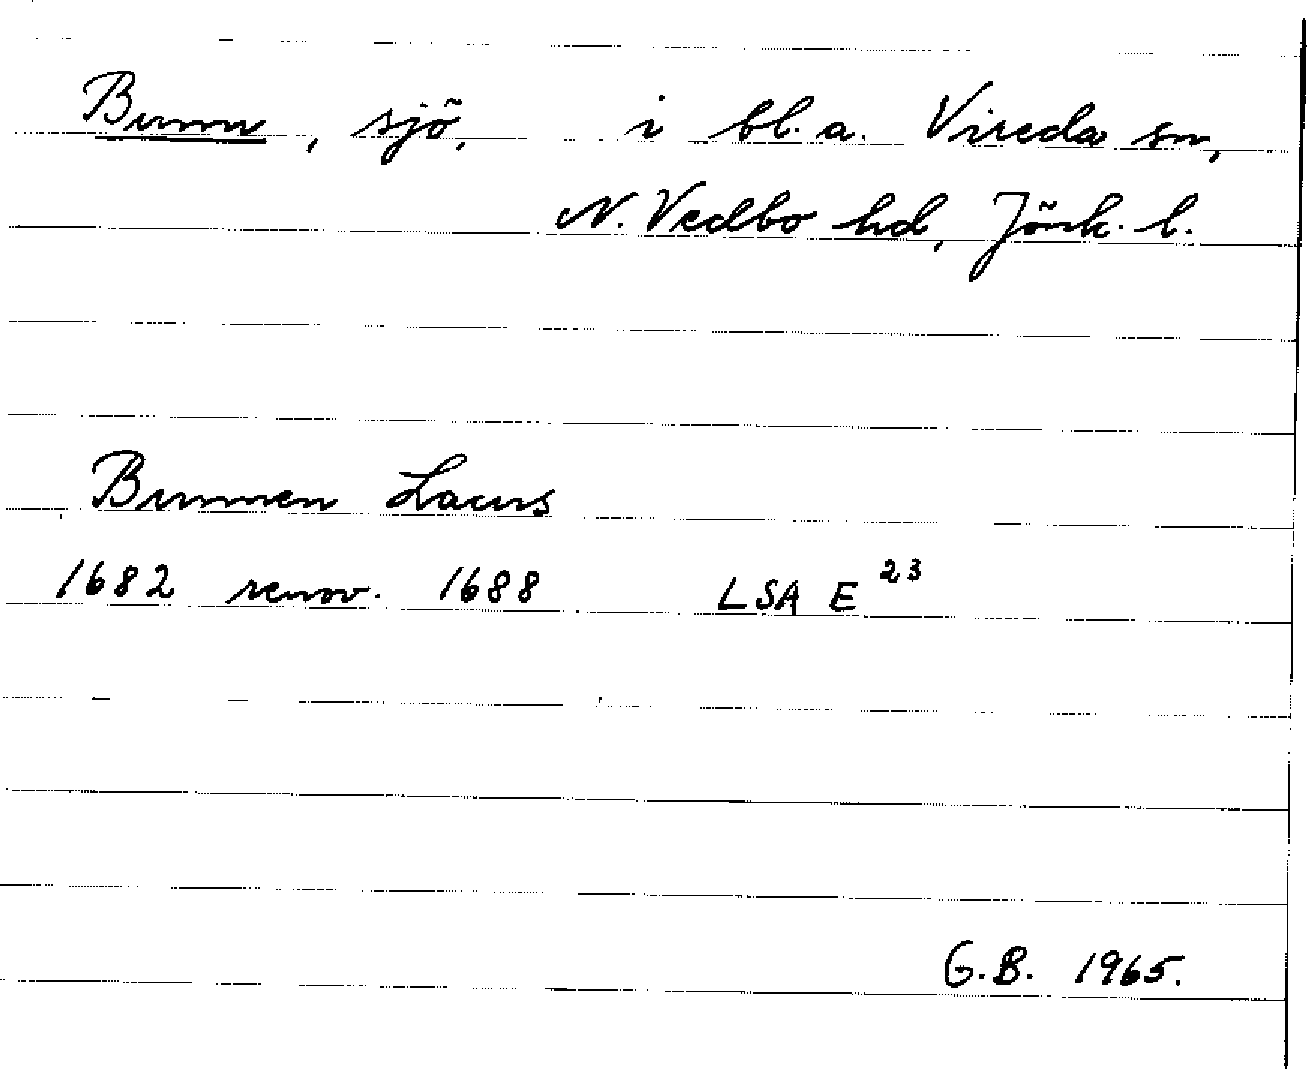 Bunn, sjö, i bl.a. Vireda sn,
N. Vedbo hd, Jönk. l.
Bunnen Lacus
1682 renov. 1688 LSA E 23
G.B. 1965.